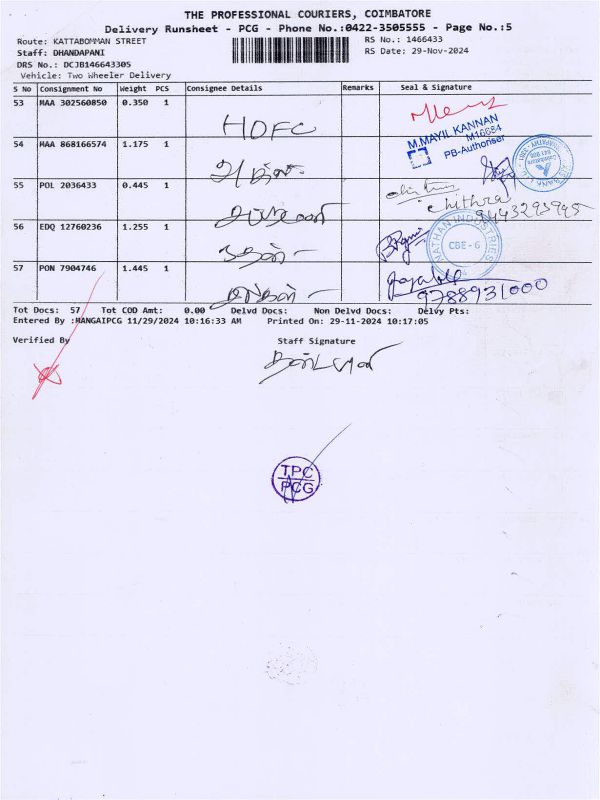 THE PROFESSIONAL COURIERS, COIMBATORE
Delivery Runsheet - PCG - Phone No.:0422-3505555 - Page No.:5
Route: KATTABOMMAN STREET
RS No.: 1466433
Staff: DHANDAPANI
RS Date: 29-Nov-2024
DRS No.: DCJB146643305
Vehicle: Two Wheeler Delivery
S No Consignment No Weight PCS Consignee Details Remarks Seal & Signature
53 MAA 302560850 0.350 1
HDFC
M.MAYIL KANNAN
M16684
PB-Authoriser
54 MAA 868166574 1.175 1
55 POL 2036433 0.445 1
chithra
9443293995
56 EDQ 12760236 1.255 1
NATHAN INDUSTRIES
CBE - 6
57 PON 7904746 1.445 1
9788931000
Tot Docs: 57 Tot COD Amt: 0.00 Delvd Docs: Non Delvd Docs: Delvy Pts:
Entered By :MANGAIPCG 11/29/2024 10:16:33 AM Printed On: 29-11-2024 10:17:05
Verified By Staff Signature
TPC
PCG